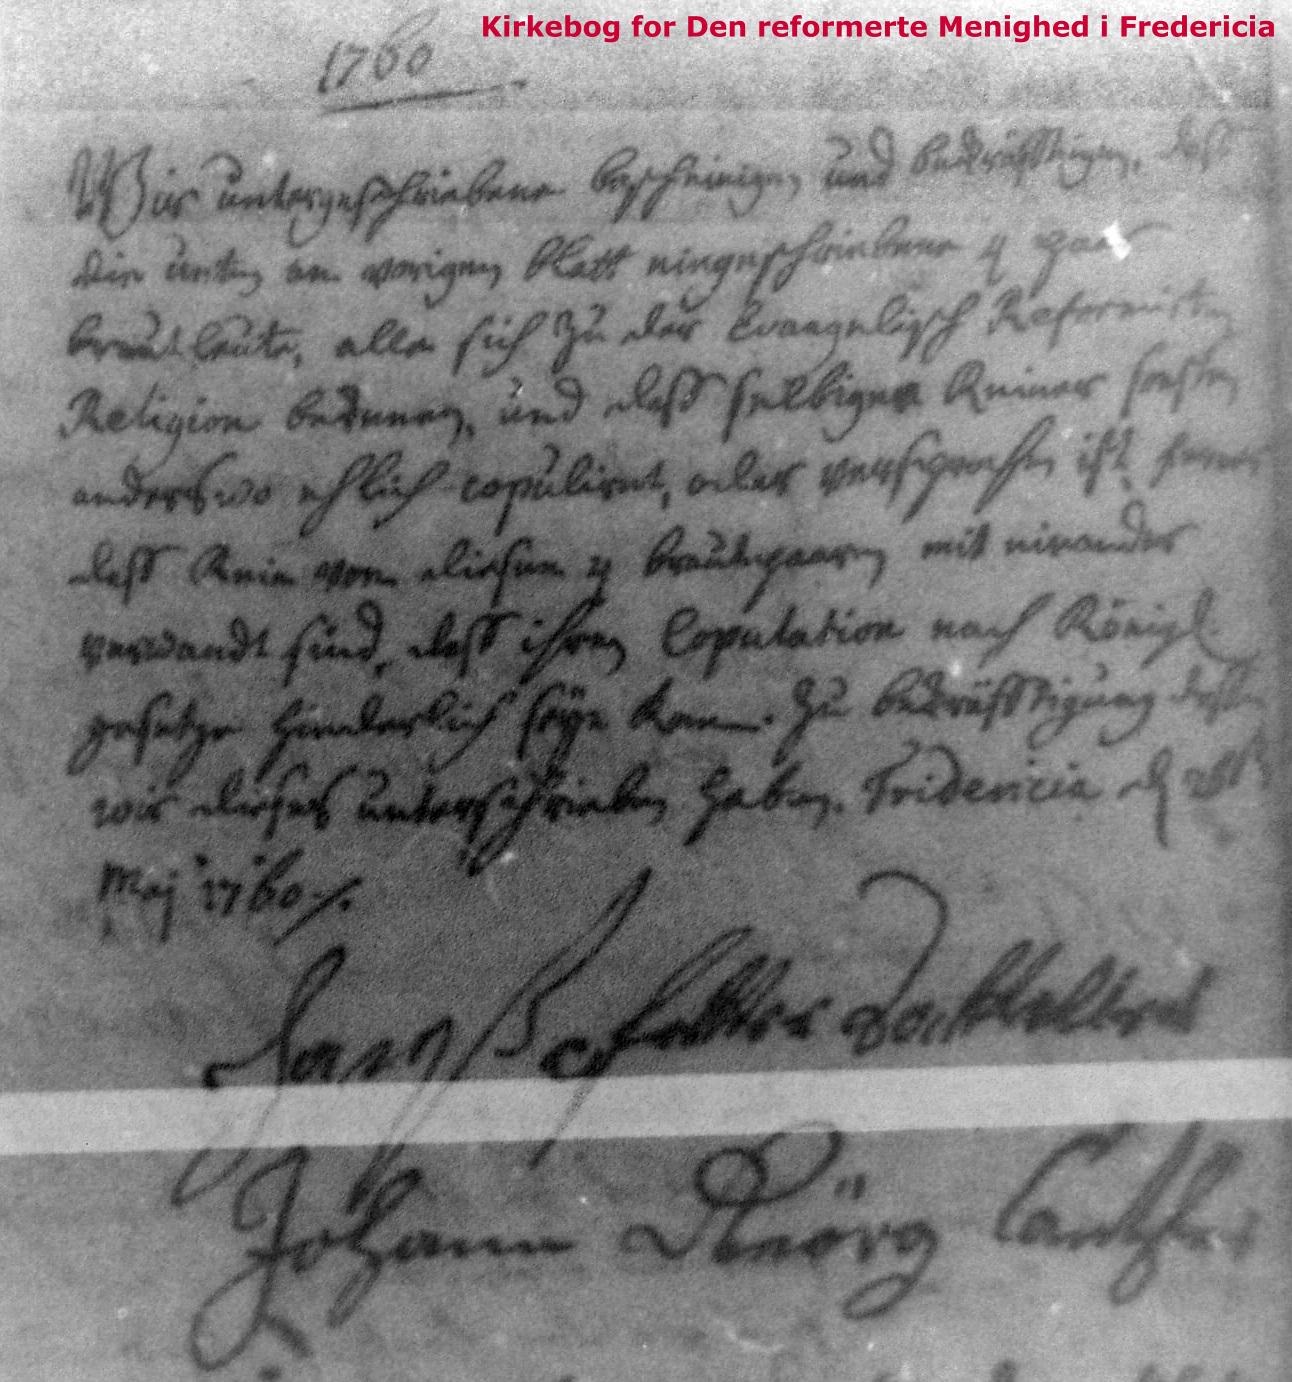 Kirkebog for Den reformerte Menighed i Fredericia
1760
Wir untergeschriebene bescheinigen und bekräfftigen, daß
die unten am vorigen Blatt eingeschriebene 4 paar
brautleute, alle sich zu der Evangelisch Reformirten
Religion bekennen, und daß selbiger Keiner sonsten
anderswo ehlich copulirt, oder versprochen ist, ferner
daß Kein von diesen 4 brautpaaren mit einander
verwandt sind, daß ihren Copulation nach Königl.
gesetze hinderlich seÿn kan. Zu bekräfftigung deßen
wir dieses unterschrieben haben. Fridericia d
Maj 1760
Johann Georg